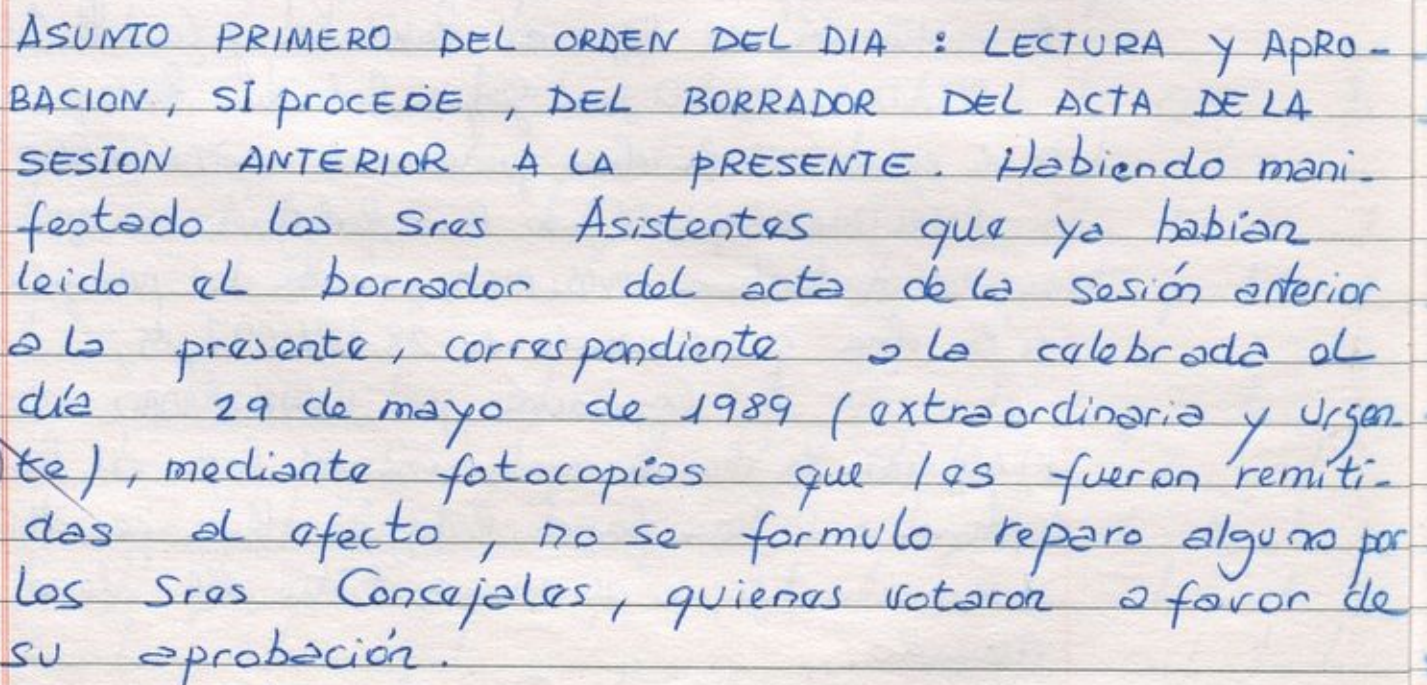 ASUNTO PRIMERO DEL ORDEN DEL DIA : LECTURA Y APRO-
BACION, SI PROCEDE, DEL BORRADOR DEL ACTA DE LA
SESION ANTERIOR A LA PRESENTE. Habiendo mani-
festado los Sres Asistentes que ya habían
leido el borrador del acta de la sesión anterior
a la presente, correspondiente a la celebrada el
día 29 de mayo de 1989 (extraordinaria y urgen-
te), mediante fotocopias que les fueron remiti-
das al efecto, no se formulo reparo alguno por
los Sres Concejales, quienes votaron a favor de
su aprobación.